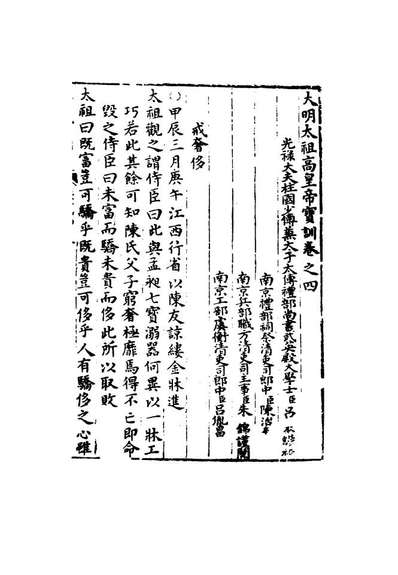 大明太祖高皇帝寶訓卷之四
光祿大夫柱國少傅兼太子太傅禮部尚書武英殿大學士臣呂本
南京禮部祠祭清吏司郎中臣陳治
南京兵部職方清吏司主事臣朱錦謹閱
南京工部虞衡清吏司郎中臣呂胤昌
戒奢侈
○甲辰三月庚午江西行省以陳友諒縷金牀進
太祖觀之謂侍臣曰此與孟昶七寶溺器何異以一牀工
巧若此其餘可知陳氏父子窮奢極靡焉得不亡即命
毀之侍臣曰未富而驕未貴而侈此所以取敗
太祖曰既富豈可驕乎既貴豈可侈乎人有驕侈之心雖